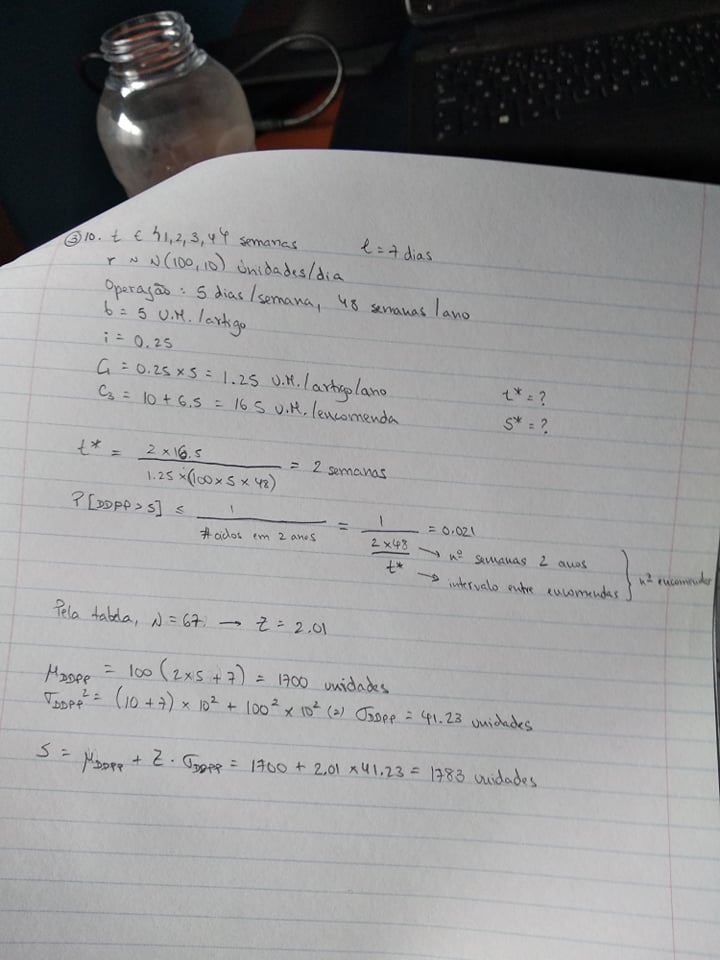 ③10. t ∈ {1, 2, 3, 4} semanas l = 7 dias
r ~ N(100, 10) unidades/dia
Operação: 5 dias/semana, 48 semanas/ano
b = 5 U.M./artigo
i = 0.25
C₁ = 0.25 × 5 = 1.25 U.M./artigo/ano t* = ?
C₃ = 10 + 6.5 = 16.5 U.M./encomenda S* = ?
t* = 2 × 16.5 / 1.25 × (100 × 5 × 48) = 2 semanas
P[DDPP > S] ≤ 1 / #ciclos em 2 anos = 1 / (2 × 48 / t*) = 0.021
→ nº semanas 2 anos
→ intervalo entre encomendas } nº encomendas
Pela tabela, N = 67. → Z = 2.01
μDDPP = 100 (2×5 + 7) = 1700 unidades
σDDPP² = (10 + 7) × 10² + 100² × 10² (=) σDDPP = 41.23 unidades
S = μDDPP + Z · σDDPP = 1700 + 2.01 × 41.23 = 1783 unidades